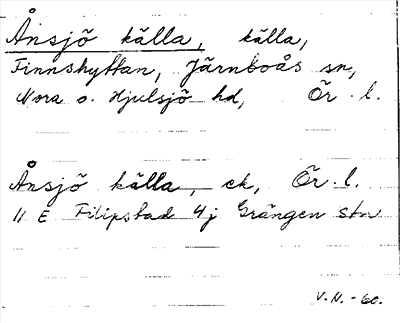 Ånsjö källa, källa,
Finnshyttan, Järnboås sn,
Nora o. Hjulsjö hd, Ör. l.
Ånsjö källa, ek, Ör. l.
11 E Filipstad 4j Grängen stn
V.N. -60.